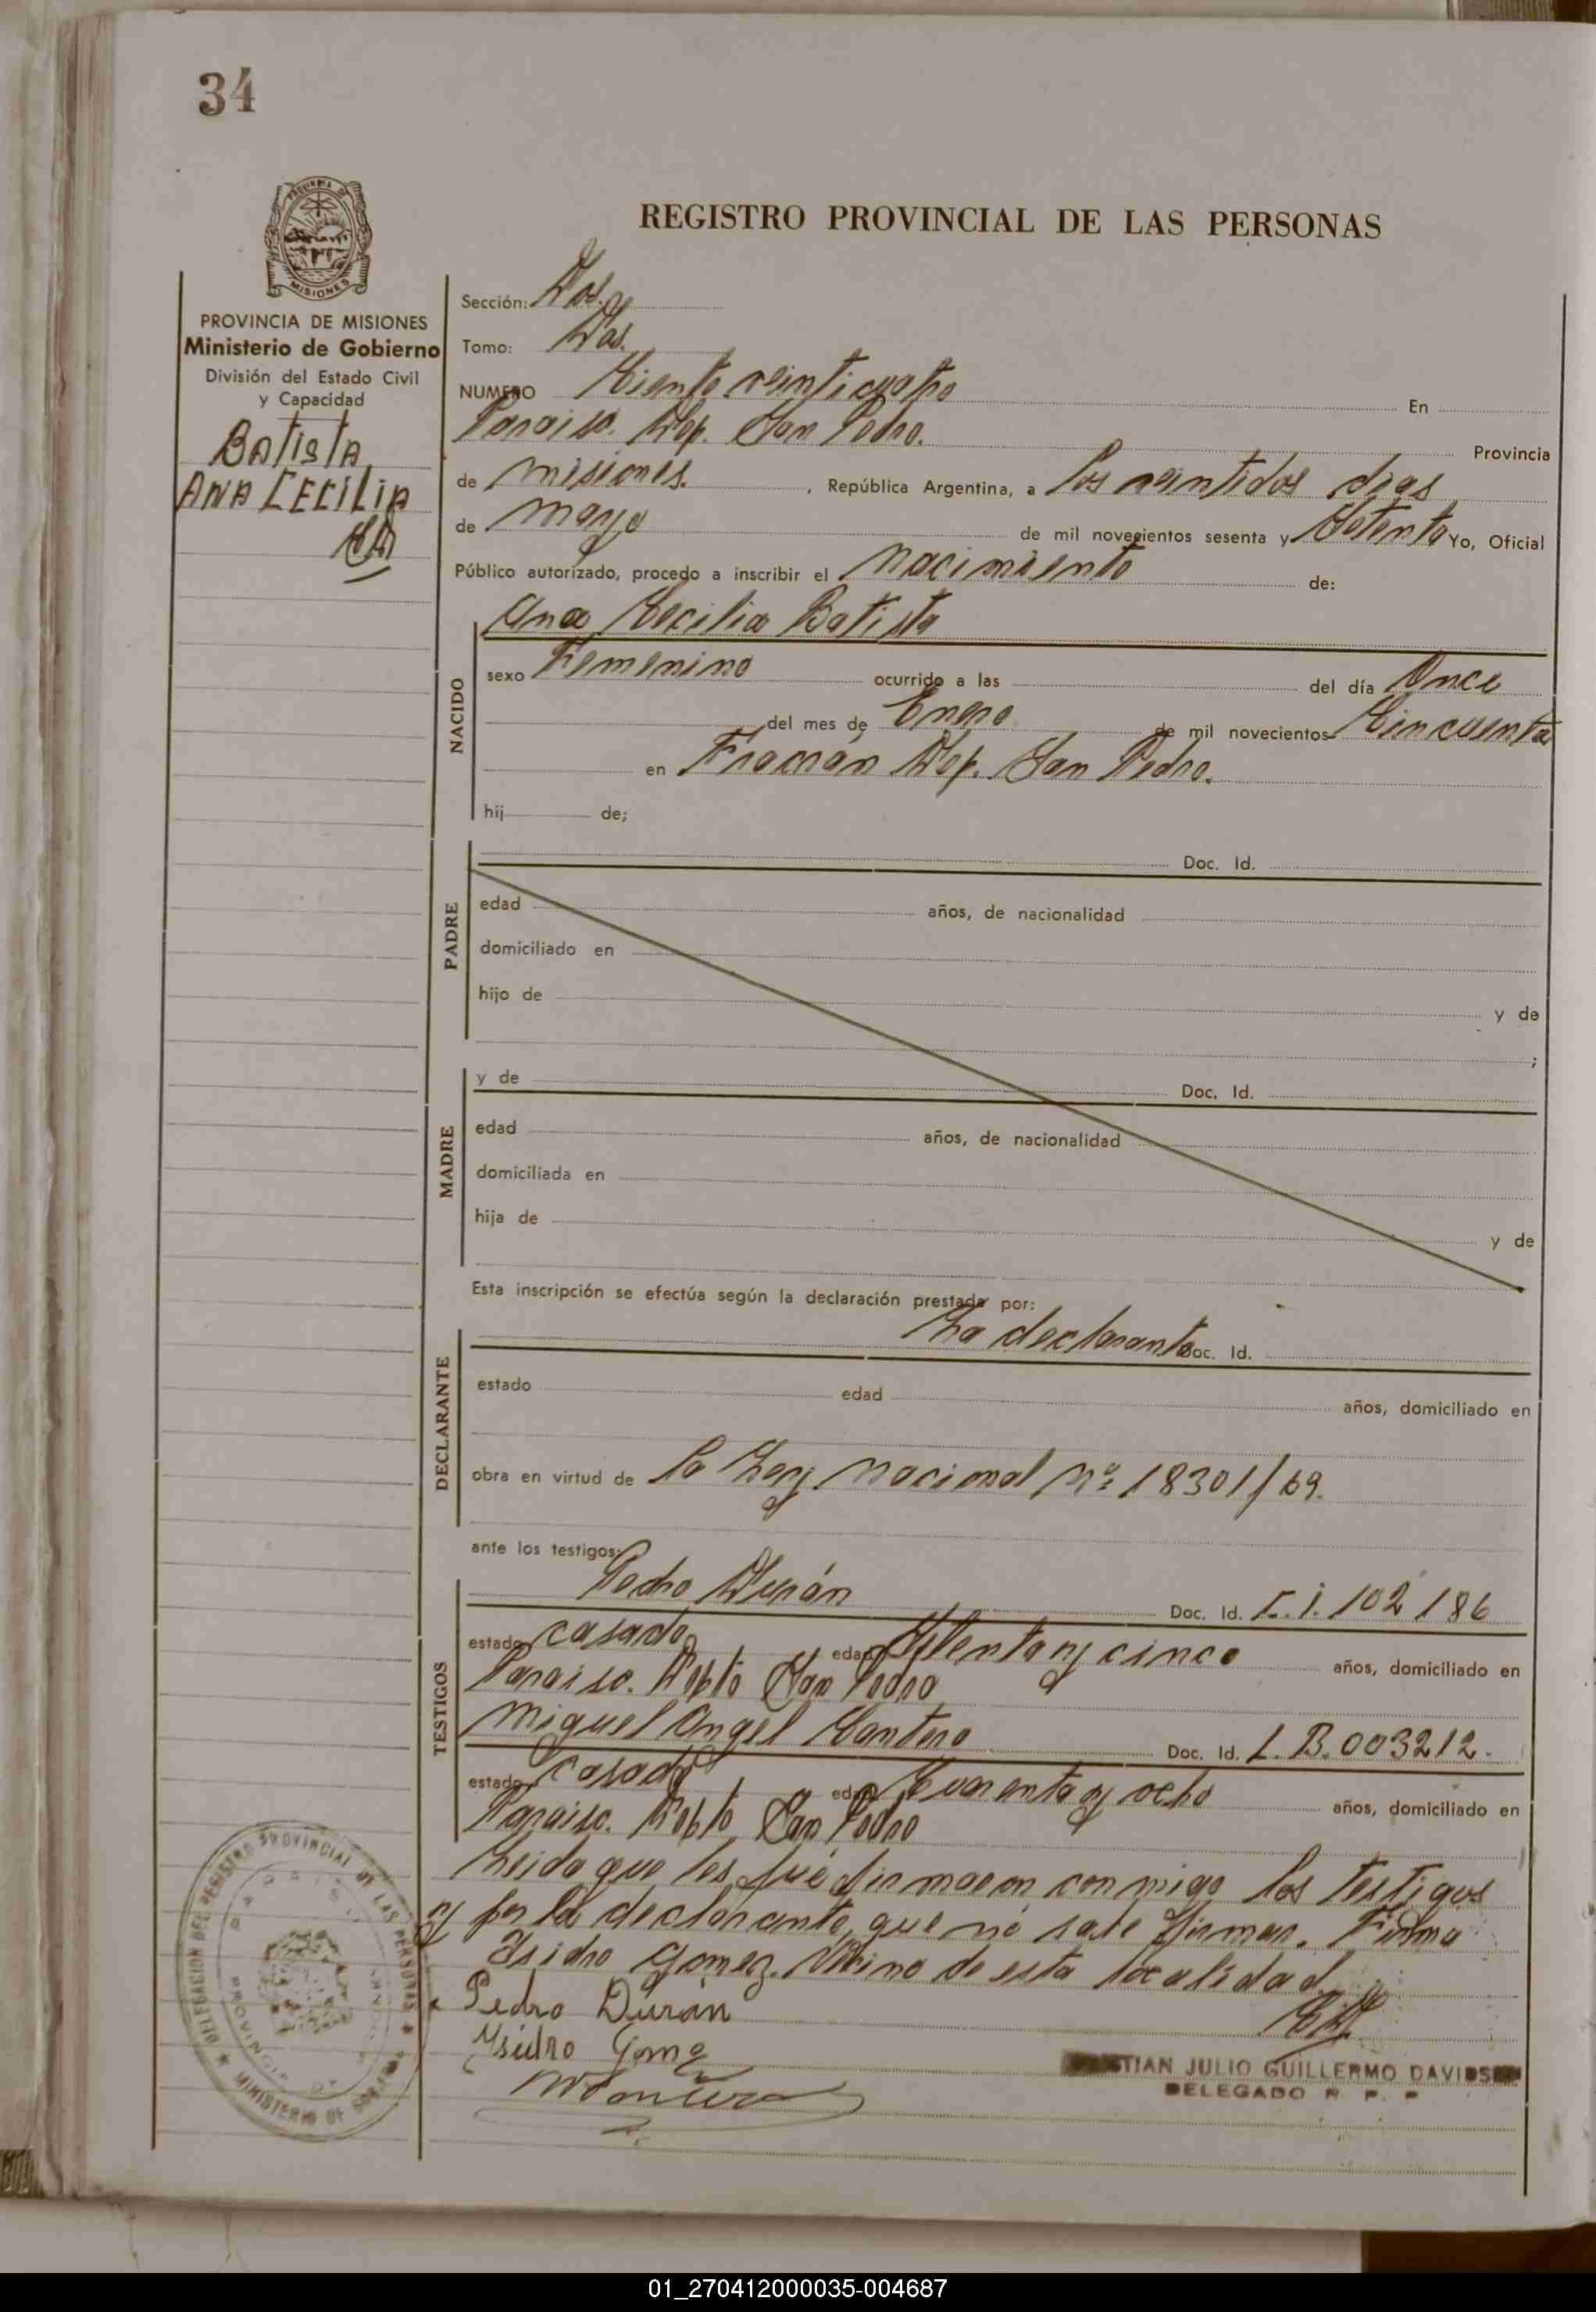 34
REGISTRO PROVINCIAL DE LAS PERSONAS
PROVINCIA DE MISIONES
Ministerio de Gobierno
División del Estado Civil
y Capacidad
Batista
ANA CECILIA
Sección: Dos.
Tomo: Dos.
NUMERO Ciento veinticuatro En
Paraiso. Dep. San Pedro. Provincia
de misiones. , República Argentina, a los veintidos dias
de mayo de mil novecientos sesenta y Setenta Yo, Oficial
Público autorizado, procedo a inscribir el nacimiento de:
NACIDO
Ana Cecilia Batista
sexo Femenino ocurrido a las del día Once
del mes de Enero de mil novecientos Cincuenta
en Fracrán Dep. San Pedro.
hij de;
PADRE
Doc. Id.
edad años, de nacionalidad
domiciliado en
hijo de y de
;
MADRE
y de Doc. Id.
edad años, de nacionalidad
domiciliada en
hija de y de
Esta inscripción se efectúa según la declaración prestada por:
DECLARANTE
La declarante Doc. Id.
estado edad años, domiciliado en
obra en virtud de la Ley nacional nº 18301/69.
ante los testigos:
TESTIGOS
Pedro Durán Doc. Id. C.i. 102186
estado casado edad Setenta y cinco años, domiciliado en
Paraiso. Depto San Pedro
Miguel Angel Cantero Doc. Id. L.B. 003212.
estado casado edad Cuarenta y ocho años, domiciliado en
Paraiso. Depto San Pedro
Leida que les fué firmaron conmigo los testigos
y por la declarante, que no sabe firmar. Firma
Isidro Gomez. Vecino de esta localidad.
Pedro Durán
Ysidro Gome
STIAN JULIO GUILLERMO DAVIDS
DELEGADO R. P. P
DELEGACION DEL REGISTRO PROVINCIAL DE LAS PERSONAS
MINISTERIO DE
MISIONES
01_270412000035-004687